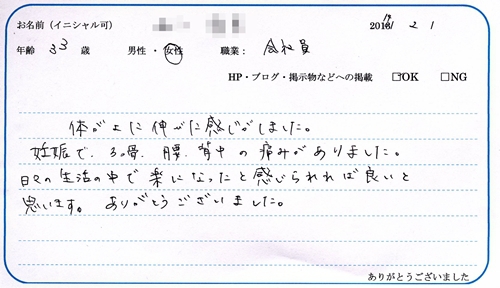 お名前（イニシャル可）
2018/ 2 / 1
年齢 33 歳 男性・女性 職業： 会社員
HP・ブログ・掲示物などへの掲載 □OK □NG
体が上に伸びた感じがしました。
妊娠で、肋骨、腰、背中の痛みがありました。
日々の生活の中で楽になったと感じられれば良いと
思います。ありがとうございました。
ありがとうございました